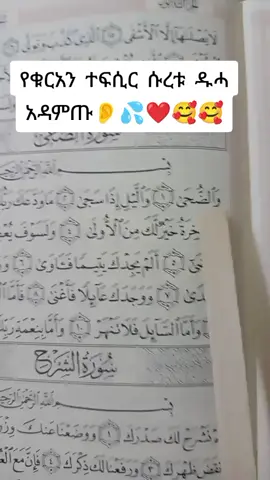 የቁርአን ተፍሲር ሱረቱ ዱሓ
አዳምጡ👂💦❤️🥰🥰
لَا يَصْلَىٰهَآ إِلَّا ٱلْأَشْقَى ۝ ٱلَّذِى كَذَّبَ وَتَوَلَّىٰ
سُورَةُ الضُّحَىٰ
وَٱلضُّحَىٰ ۝ وَٱلَّيْلِ إِذَا سَجَىٰ ۝ مَا وَدَّعَكَ رَبُّكَ
خِرَةُ خَيْرٌ لَّكَ مِنَ ٱلْأُولَىٰ ۝ وَلَسَوْفَ يُعْطِ
۝ أَلَمْ يَجِدْكَ يَتِيمًا فَـَٔاوَىٰ ۝
۝ وَوَجَدَكَ عَآئِلًا فَأَغْنَىٰ ۝ فَأَمَّا
۝ وَأَمَّا ٱلسَّآئِلَ فَلَا تَنْهَرْ ۝ وَأَمَّا بِنِعْمَةِ رَبِّكَ
سُورَةُ الشَّرْحِ
نَشْرَحْ لَكَ صَدْرَكَ ۝ وَوَضَعْنَا عَنكَ وِزْرَ
نقَضَ ظَهْرَكَ ۝ وَرَفَعْنَا لَكَ ذِكْرَكَ ۝ فَإِنَّ مَعَ ٱلْعُ